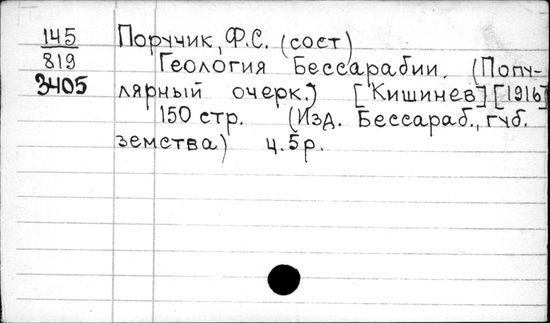 145 Поручик, Ф.С. (сост)
819 Геология Бессарабии. (Попу-
3405 лярный очерк.) [Кишинев] [1916]
150 стр. (Изд. Бессараб., губ.
земства) ц. 5 р.